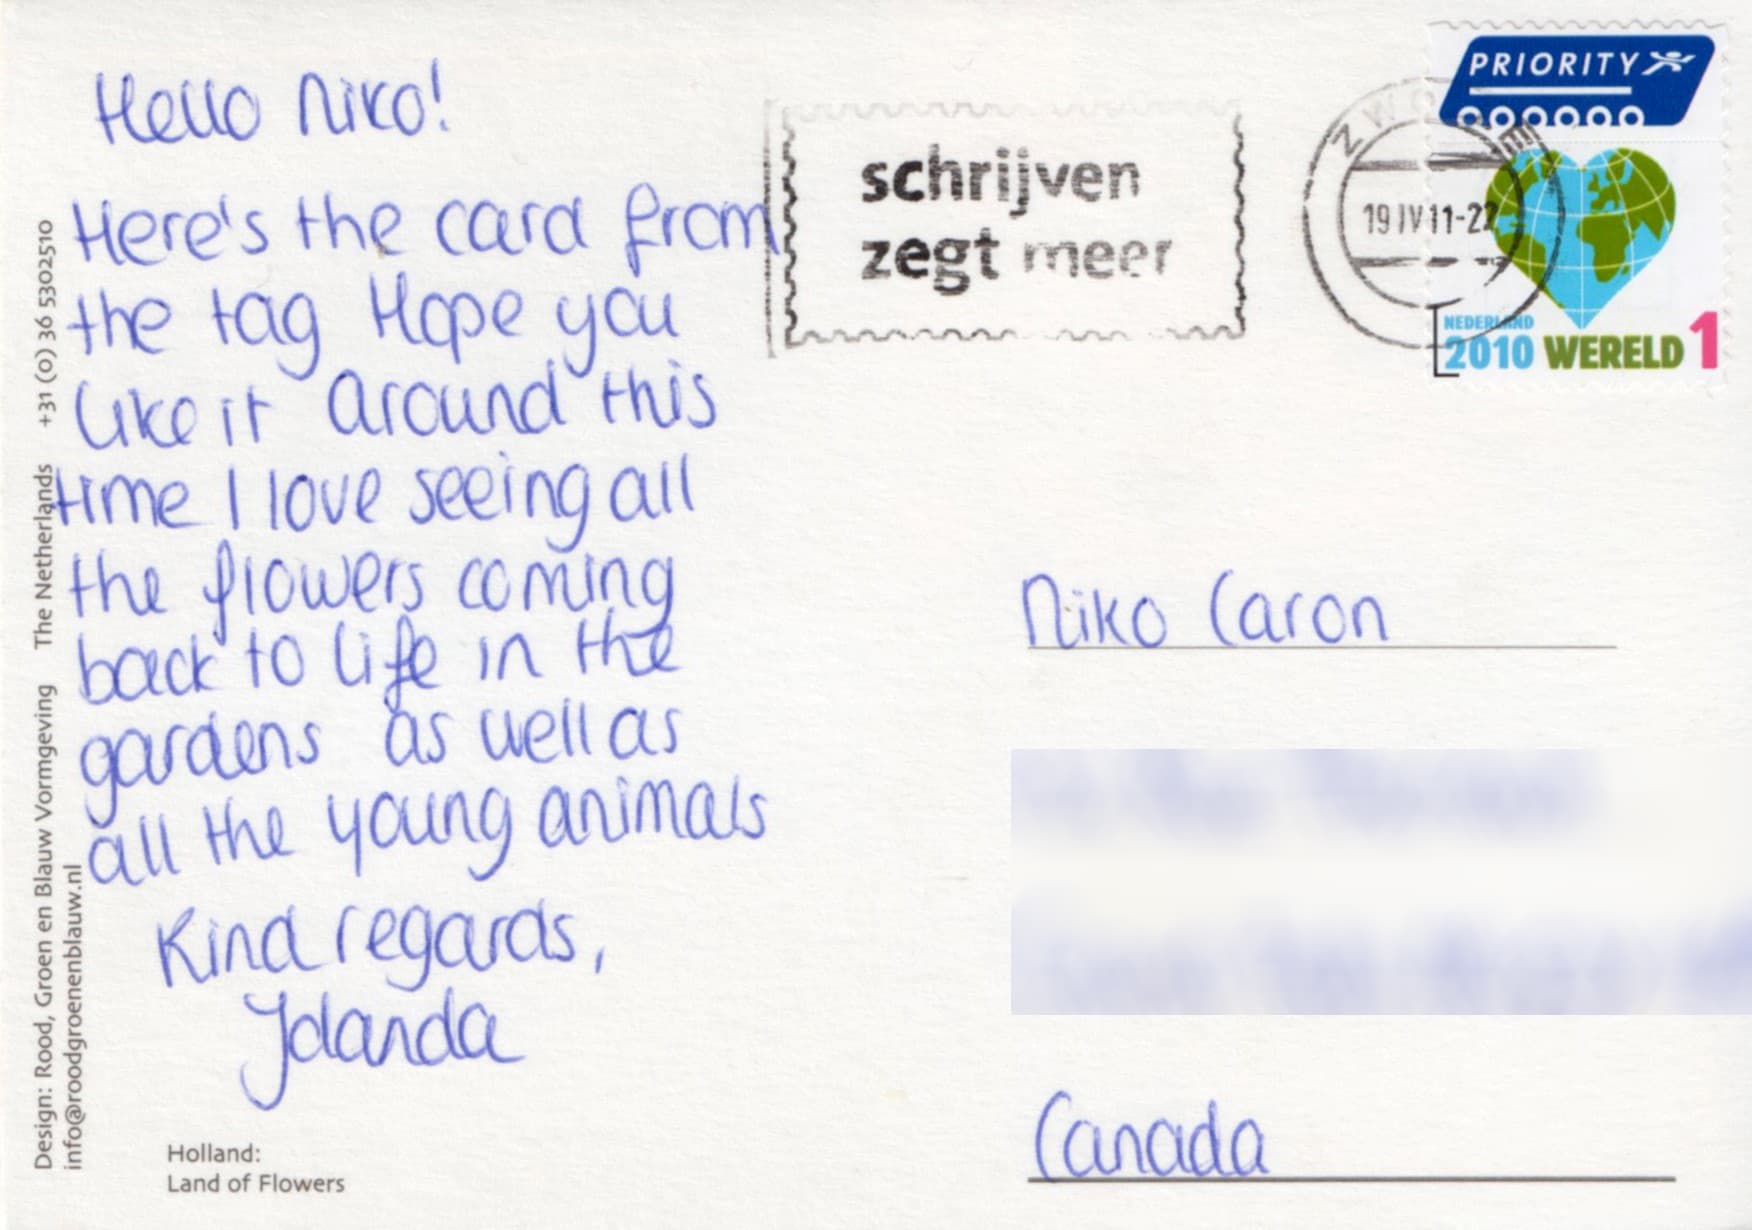 Hello Niko!
Here's the card from
the tag Hope you
like it Around this
time I love seeing all
the flowers coming
back to life in the
gardens as well as
all the young animals
Kind regards,
Jolanda
Holland:
Land of Flowers
Design: Rood, Groen en Blauw Vormgeving The Netherlands +31 (0) 36 5302510
info@roodgroenenblauw.nl
schrijven
zegt meer
ZWOLLE
19 IV 11-22
PRIORITY
NEDERLAND
2010 WERELD 1
Niko Caron
Canada